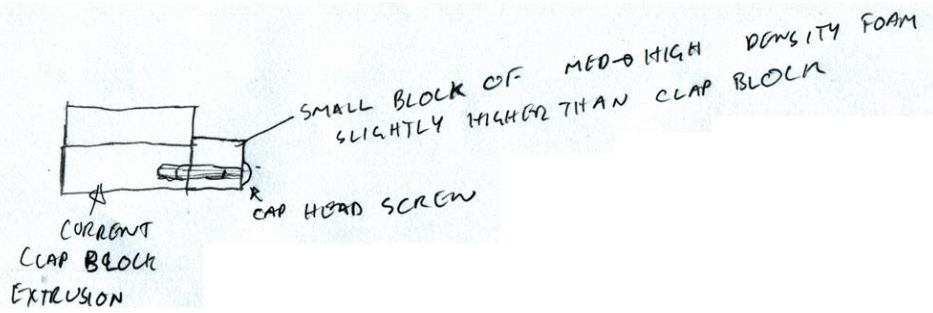 SMALL BLOCK OF MED-HIGH DENSITY FOAM
SLIGHTLY HIGHER THAN CLAP BLOCK
CAP HEAD SCREW
CURRENT
CLAP BLOCK
EXTRUSION